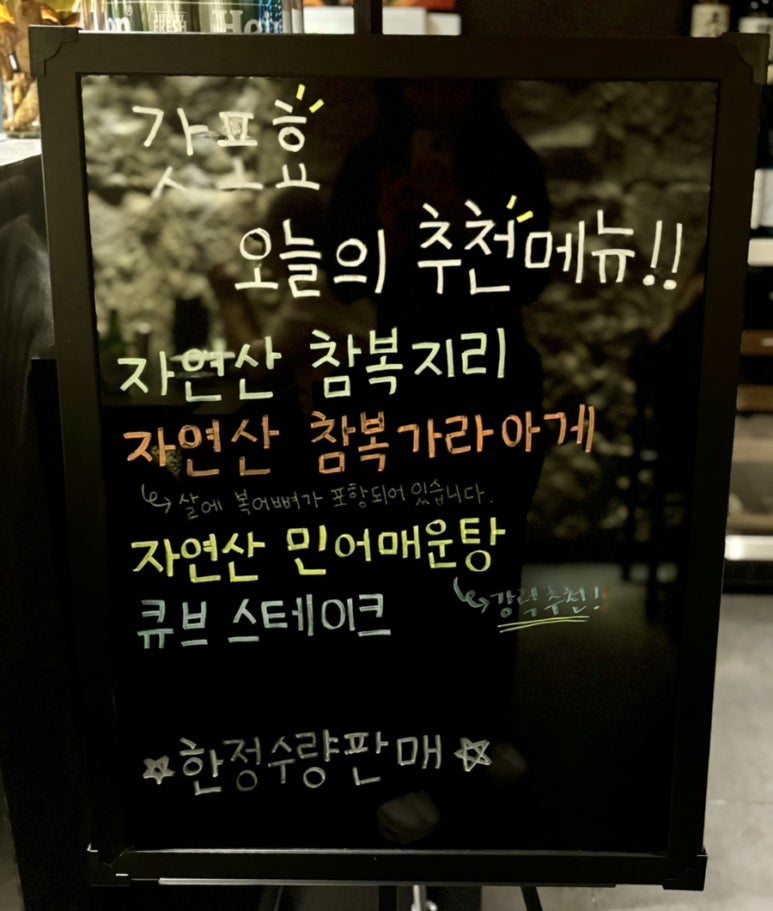 FRESH
갓포효
오늘의 추천메뉴!!
자연산 참복지리
자연산 참복가라아게
살에 복어뼈가 포함되어 있습니다.
자연산 민어매운탕
강력추천!
큐브 스테이크
☆한정수량판매☆